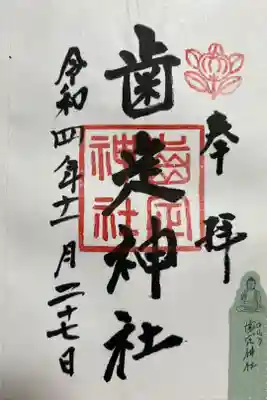 奉拝
歯定神社
令和四年十一月二十七日
齒定
神社
歯定神社